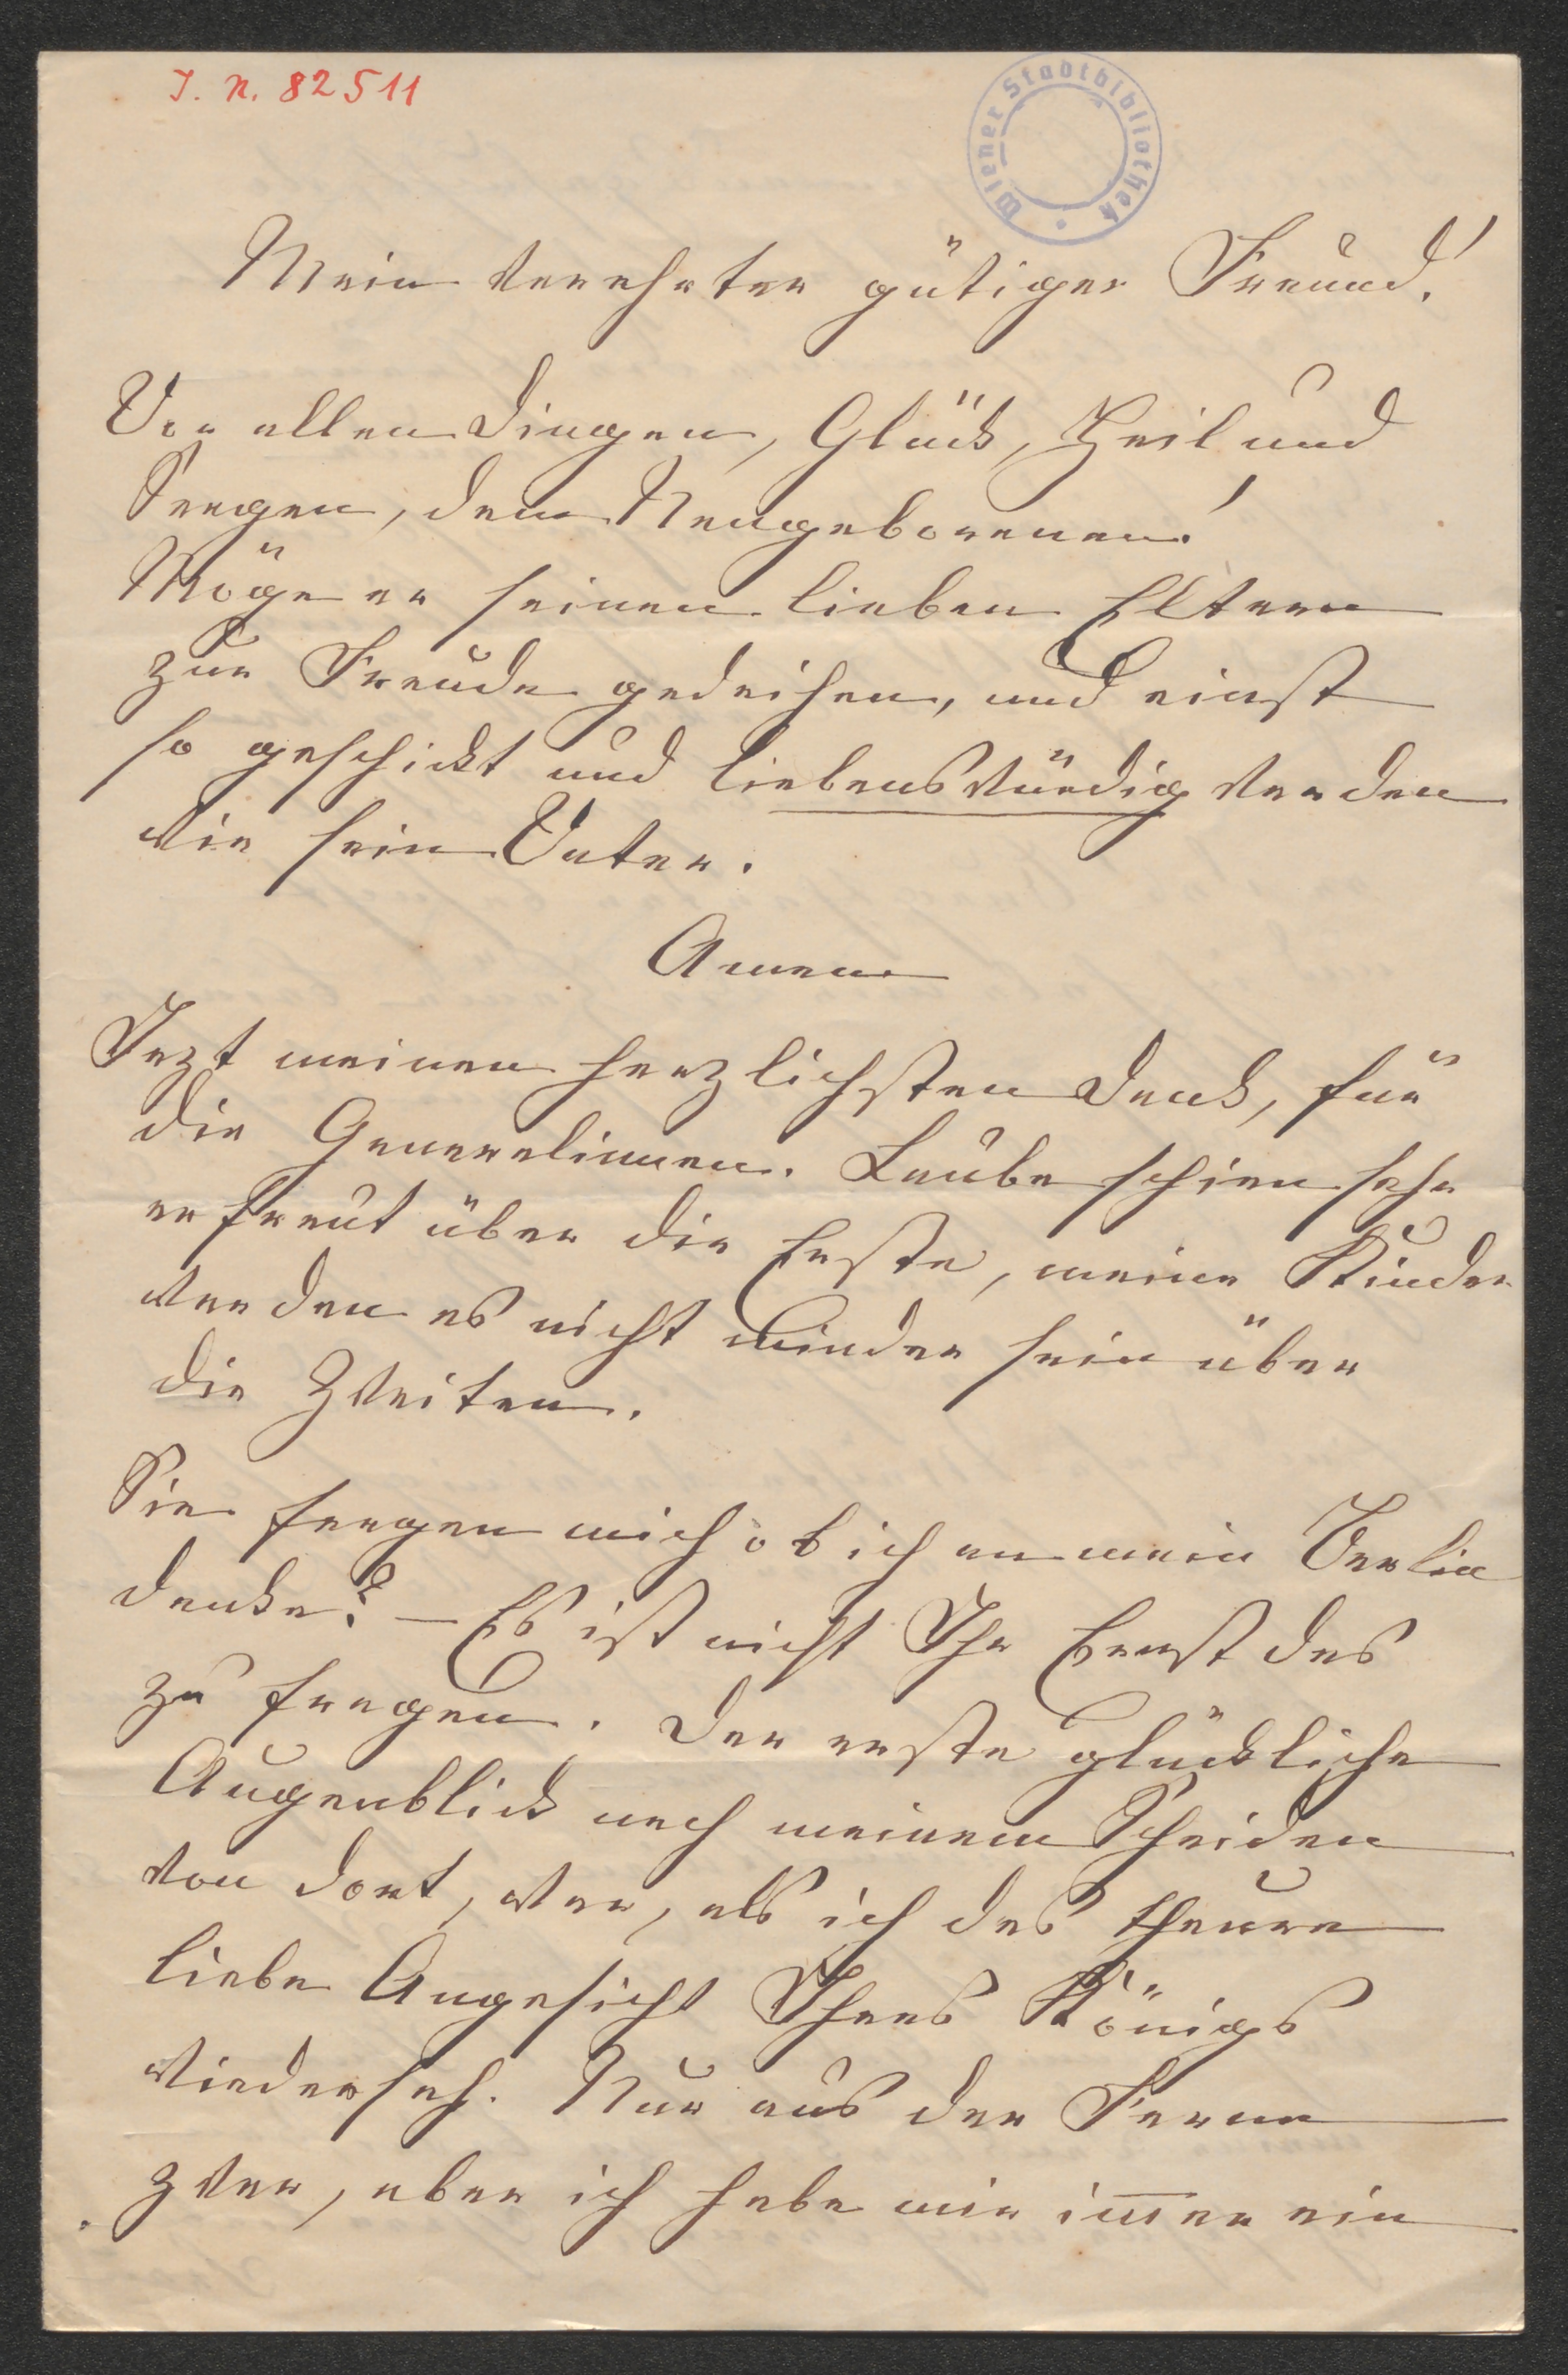 J. N. 82511
Wiener Stadtbibliothek
Mein verehrter gütiger Freund!
Vor allen Dingen, Glück, Heil und
Seegen, dem Neugeborenen!
Möge er seinen lieben Eltern
zur Freude gedeihen, und einst
so geschickt und liebenswürdig werden
wie sein Vater.
Amen
Jezt meinen herzlichsten Dank, für
die Generalinnen. Laube schien sehr
erfreut über die Erste, meine Kinder
werden es nicht minder sein über
die Zweiten.
Sie fragen mich ob ich an mein Berlin
denke? – Es ist nicht Ihr Ernst das
zu fragen. Der erste glückliche
Augenblick nach meinem Scheiden
von dort, war, als ich das theure
liebe Angesicht Ihres Königs
wiedersah. Nur aus der Ferne
zwar, aber ich habe mir im̅er ein